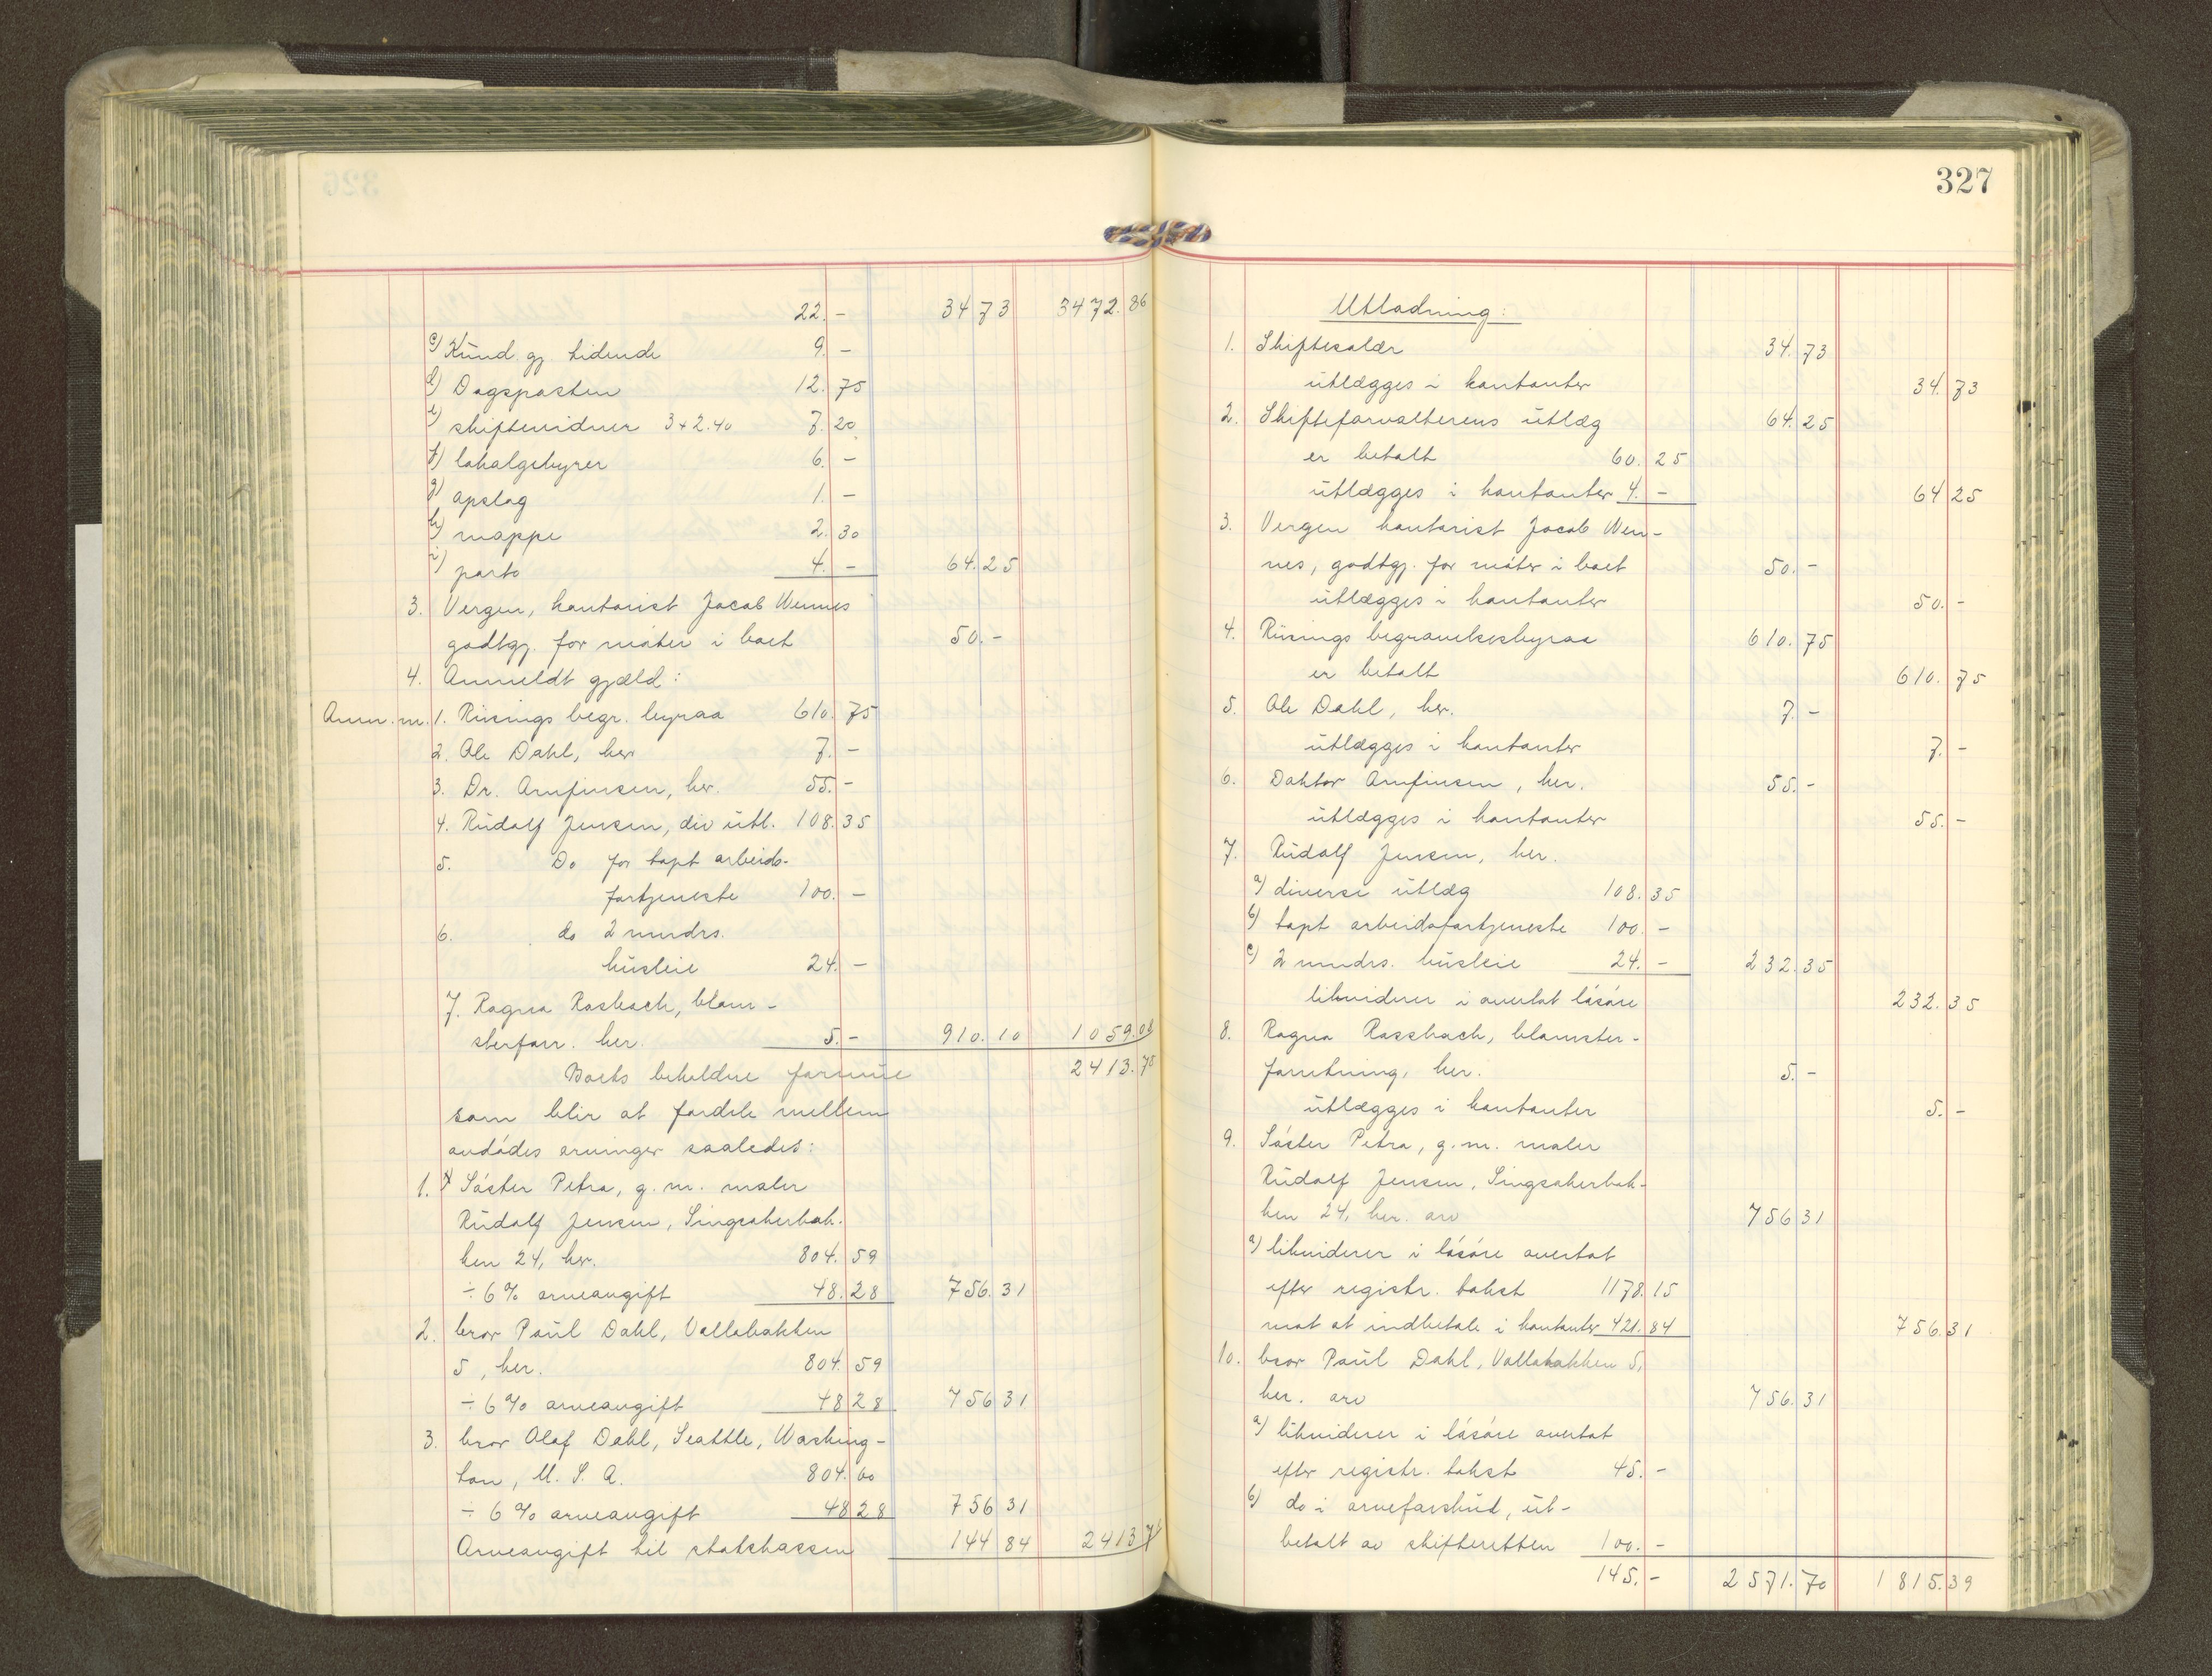 326
22.- 34 73 3472.86
c) Kund. gj tidende 9.-
d) Dagsposten 12.75
e) skiftevidner 3 + 2.40 7.20
f) lokalgebyrer 6.-
g) opslag 1.-
h) mappe 2.30
i) porto 4.- 64.25
3. Vergen, kontorist Jacob Wennes
godtgj. for møter i boet 50.-
4. Anmeldt gjæld:
Anm. m. 1. Risings begr. byraa 610.75
2. Ole Dahl, her 7.-
3. Dr. Arnfinsen, her. 55.-
4. Rudolf Jensen, div utl. 108.35
5. Do for tapt arbeids-
fortjeneste 100.-
6. do 2 mndrs.
husleie 24.-
7. Ragna Rosbach, blom-
sterforr. her. 5.- 910.10 1059.08
Boets beholdne formue 2413.78
som blir at fordele mellem
avdødes arvinger saaledes:
1. Søster Petra, g. m. maler
Rudolf Jensen, Singsakerbak-
ken 24, her. 804.59
÷ 6 % arveavgift 48.28 756.31
2. bror Paul Dahl, Vollabakken
5, her. 804.59
÷ 6 % arveavgift 48 28 756 31
3. bror Olaf Dahl, Seattle, Washing-
ton, U. S. A. 804.60
÷ 6 % arveavgift 48 28 756 31
Arveavgift til statskassen 144 84 2413 78
327
Utlodning:
1. Skiftesalær 34.73
utlægges i kontanter 34.73
2. Skifteforvalterens utlæg 64.25
er betalt 60.25
utlægges i kontanter 4.- 64 25
3. Vergen kontorist Jacob Wen-
nes, godtgj. for møter i boet 50.-
utlægges i kontanter 50.-
4. Risings begravelsesbyraa 610.75
er betalt 610.75
5. Ole Dahl, her. 7.-
utlægges i kontanter 7.-
6. Doktor Arnfinsen, her. 55.-
utlægges i kontanter 55.-
7. Rudolf Jensen, her.
a) diverse utlæg 108.35
b) tapt arbeidsfortjeneste 100.-
c) 2 mndrs. husleie 24.- 232.35
likviderer i overtat løsøre 232.35
8. Ragna Rossbach, blomster-
forretning, her. 5.-
utlægges i kontanter 5.-
9. Søster Petra, g. m. maler
Rudolf Jensen, Singsakerbak-
ken 24, her. arv 756 31
a) likviderer i løsøre overtat
efter registr. takst 1178.15
mot at indbetale i kontanter 421.84 756.31
10. bror Paul Dahl, Vollabakken 5,
her. arv 756.31
a) likviderer i løsøre overtat
efter registr. takst 45.-
b) do i arveforskud, ut-
betalt av skifteretten 100.-
145.- 2571.70 1815.39